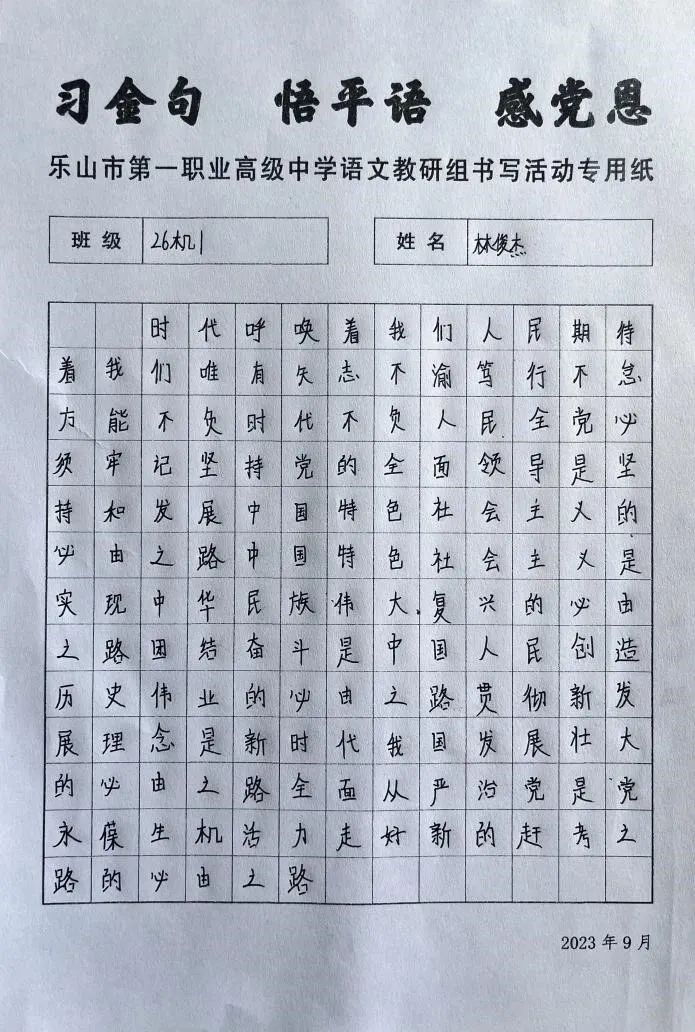 习金句 悟平语 感党恩
乐山市第一职业高级中学语文教研组书写活动专用纸
班级 26机1 姓名 林俊杰
时代呼唤着我们人民期待
着我们唯有矢志不渝笃行不怠
方能不负时代不负人民全党必
须牢记坚持党的全面领导是坚
持和发展中国特色社会主义的
必由之路中国特色社会主义是
实现中华民族伟大复兴的必由
之路团结奋斗是中国人民创造
历史伟业的必由之路贯彻新发
展理念是新时代我国发展壮大
的必由之路全面从严治党是党
永葆生机活力走好新的赶考之
路的必由之路
2023年9月